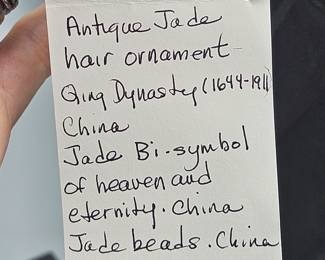 Antique Jade
hair ornament -
Qing Dynasty (1644-1911)
China
Jade Bi-symbol
of heaven and
eternity. China
Jade beads. China